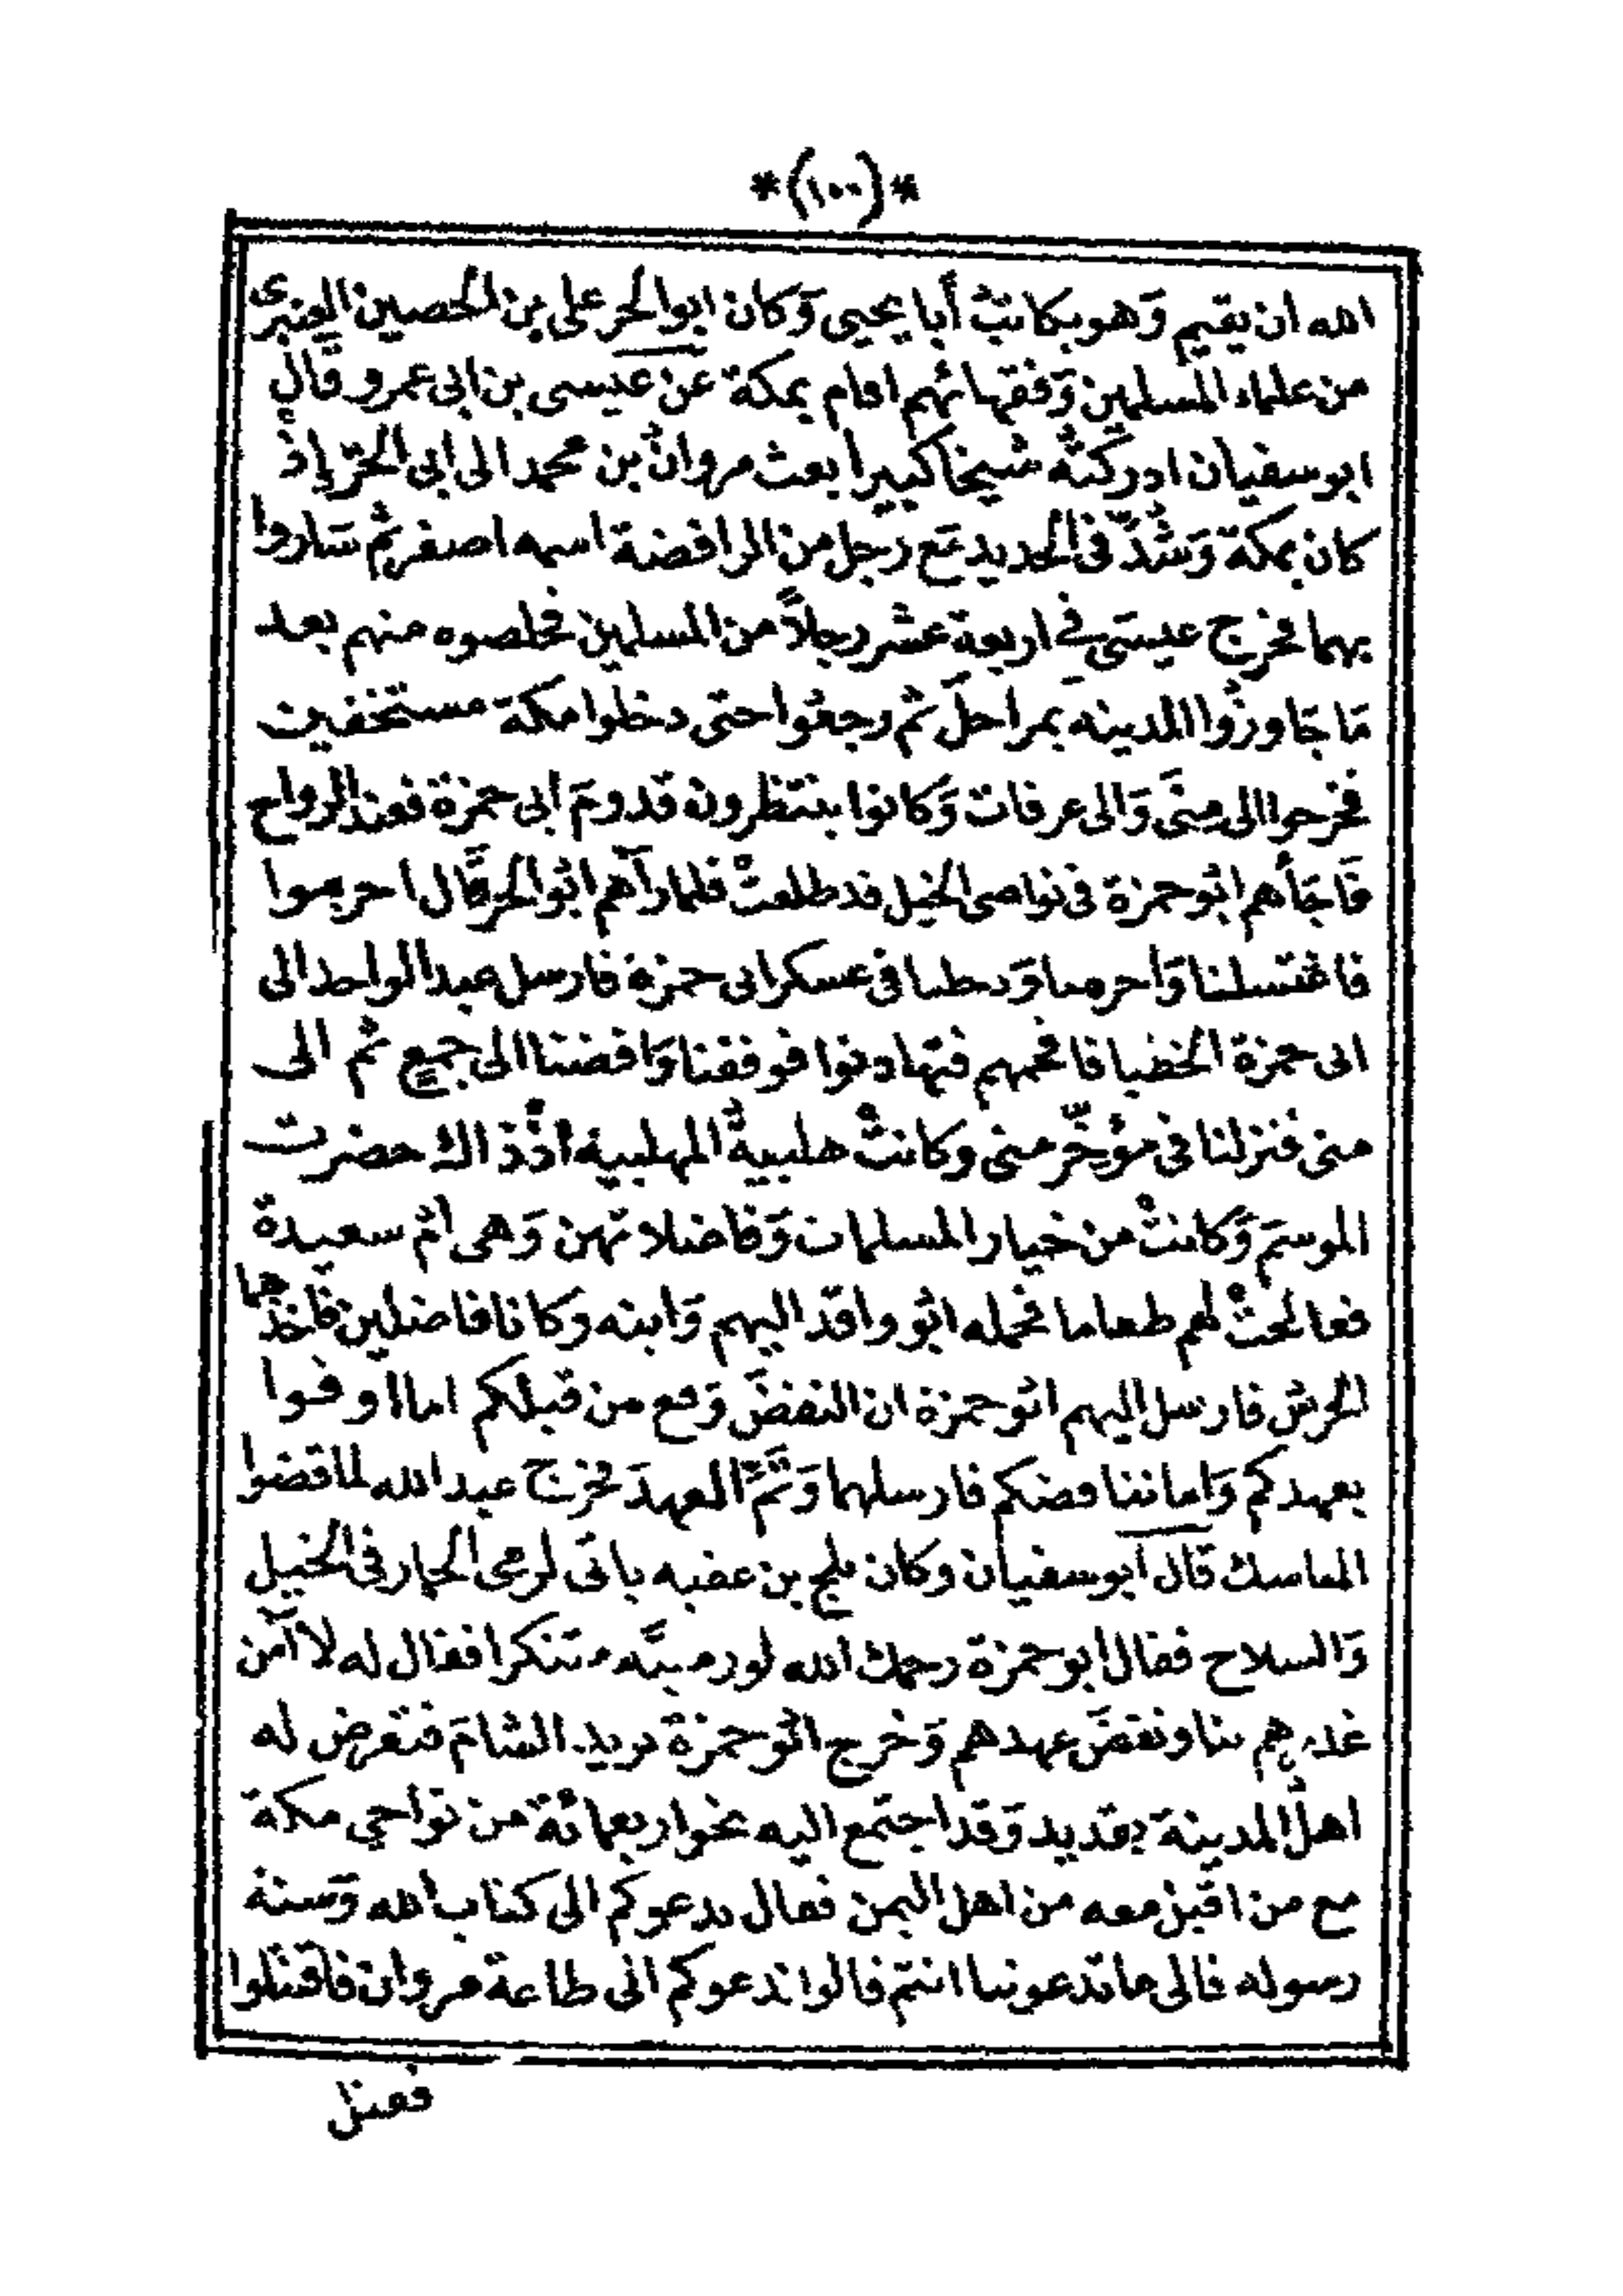 *(١٠٠)*
الله ان يقيم وَهو يكاتبُ أبا يحيى وَكان ابو الحر على بن الحصين العنبرى
من علماء المسلمين وَفقهائهم اقام بمكة عن عيسى بن ابى عمرو قَال
ابو سفيان ادركتُه شيخا كبيرا بعث مروانُ بن محمد الى ابى الحرّ إذْ
كان بمكة وَشُدّ فى الحديد مَع رجل من الرافضة اسمه اصفر ثم سَاروا
بهما فخرج عيسَى فى اربعة عشر رجلاً من المسلمين فخلصوه منهم بعد
مَا جَاوزُوا المدينه بمراحلَ ثم رجعوا حتى دخلوا مكة مستخفين
فخرجوا الى مِنًى وَالى عرفات وَكانوا ينتظرون قدومَ ابى حمزة فعند الرواح
فَاجَأهم ابُو حمزة فى نواصى الخيل قد طلعتْ فلما رآهم ابُو الحر قَال احرموا
فاغتسلنا وَاحرمنا وَدخلنا فى عسكر ابى حمزة فارسل عبد الواحد الى
ابى حمزة الخضيا فافحمهم فتهادنوا فوقفنا وَافضنا الى جميع ثم الى
منى فنزلنا فى مؤخّر منى وكانتْ هلبيةُ المهلبية اذْ ذاك حضرت
الموسمَ وَكانتْ من خيار المسلمات وَفاضلاتهن وَهى امّ سعيدة
فعالجتْ لهم طعاما فحمله ابُو واقد اليهم وَابنه وكانا فاضلين فاخذهما
الحرسُ فارسل اليهم ابُو حمزة ان النقضَ وَقع من قبلكم اما اوفوا
بعهدكم وَاما نناقضكم فارسلهما وَتَمَّ العهدَ فخرج عبد الله لما قضوا
المناسك قَال ابو سفيان وكان بلج بن عقبه ياتى لرمى الجمار فى الخيل
وَالسلاح فقال ابو حمزة رحمك الله لو رميتَه متنكرا فقال له لا آمن
غدرهم بنا ونقضَ عهدهم وَخرج ابُو حمزة يريد الشامَ فتعرض له
اهلُ المدينة بقديد وَقد اجتمع اليه نحو اربعمائة من نواحي مكة
مع من اقبل معه من اهل اليمن فقال ندعوكم الى كتاب الله وَسنة
رسوله فالى ما تدعوننا انتم قالوا ندعوكم الى طاعة مروان فاقتتلوا
فقتل